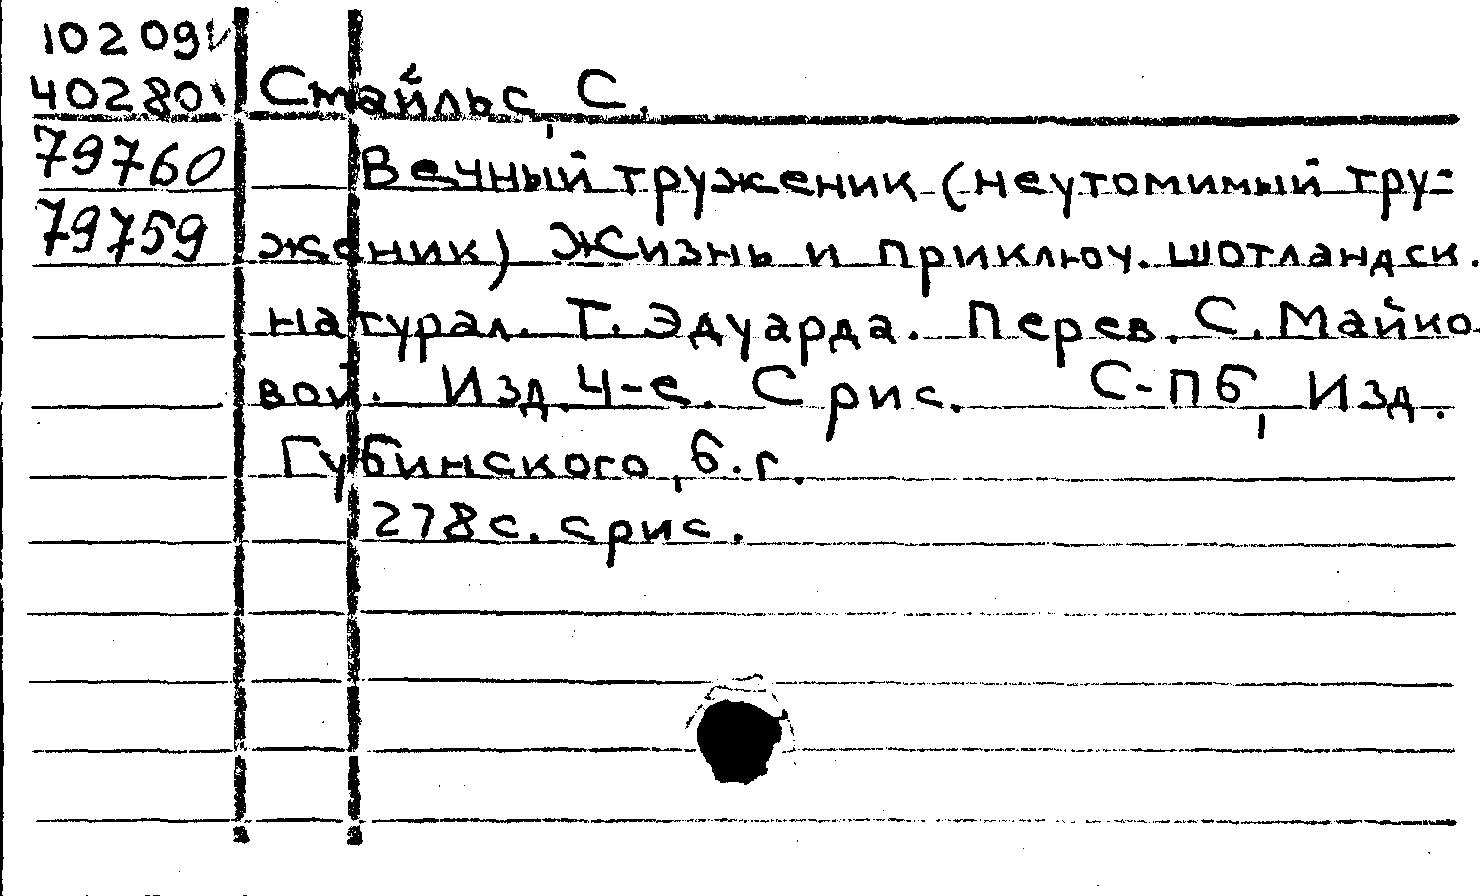 10209
40280 Смайльс, С.
79760 Вечный труженик (неутомимый тру-
79759 женик) Жизнь и приключ. шотландск.
натурал. Т. Эдуарда. Перев. С. Майко-
вой. Изд. 4-е. С рис. С-Пб, Изд.
Губинского, б. г.
278 с. с рис.